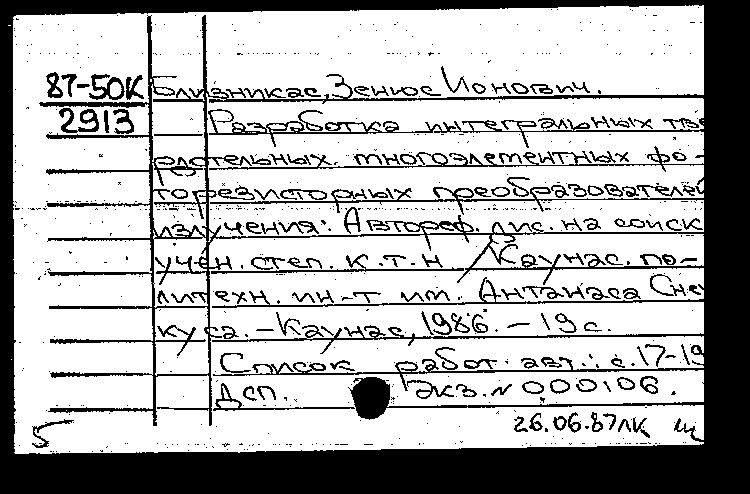 87-50К Близникас, Зенюс Ионович.
2913 Разработка интегральных тве
рдотельных многоэлементных фо-
торезисторных преобразователей
излучения: Автореф. дис. на соиск
учен. степ. к.т.н / Каунас. по-
литехн. ин-т им. Антанаса Сне
куса. - Каунас, 1986. - 19 с.
Список работ авт.: с. 17-19
Дсп. Экз. N 000106.
26.06.87лк щ
5